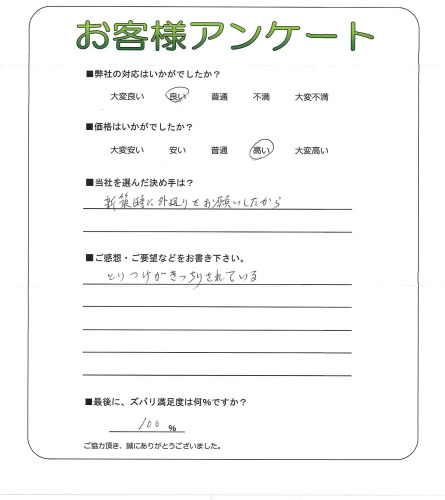 お客様アンケート
■弊社の対応はいかがでしたか？
大変良い 良い 普通 不満 大変不満
■価格はいかがでしたか？
大変安い 安い 普通 高い 大変高い
■当社を選んだ決め手は？
新築時に外廻りをお願いしたから
■ご感想・ご要望などをお書き下さい。
とりつけがきっちりされている
■最後に、ズバリ満足度は何％ですか？
100 ％
ご協力頂き、誠にありがとうございました。